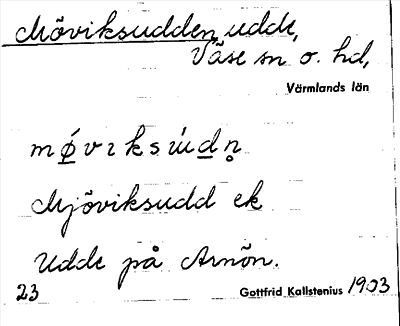 Möviksudden, udde,
Väse sn o. hd,
Värmlands län
mǿvıksu̇́dn̥
Mjöviksudd ek
Udde på Arnön.
23 Gottfrid Kallstenius 1903